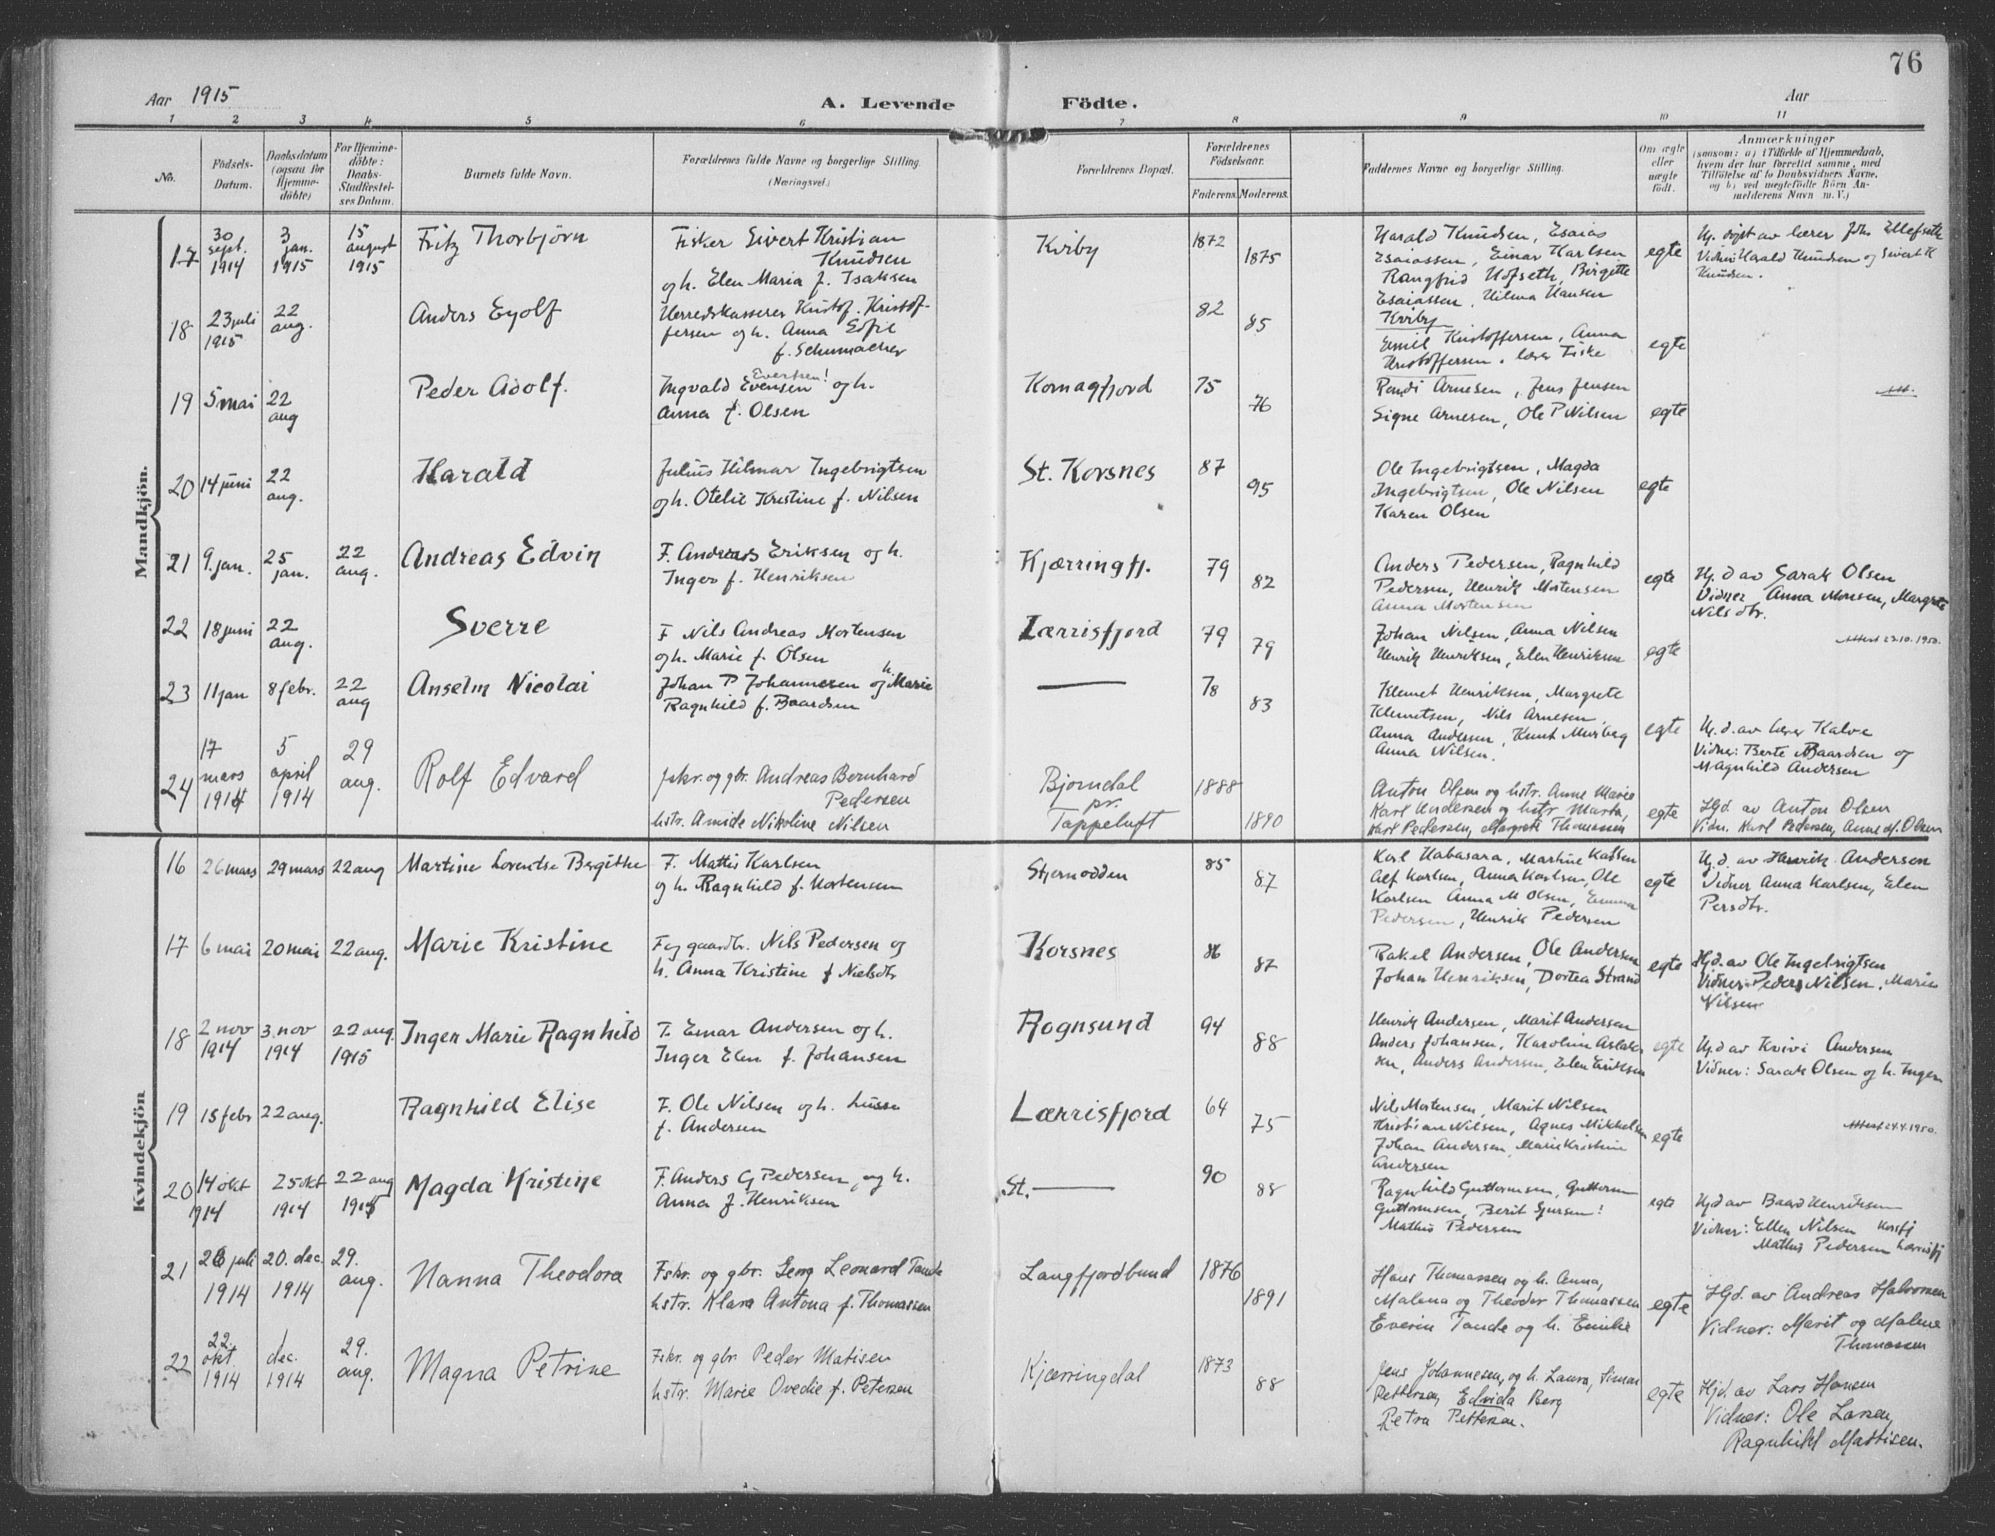 76
Aar 1915
A. Levende Födte.
Aar
1 2 3 4 5 6 7 8 9 10 11
No.
Födsels-Datum.
Daabsdatum (ogsaa for Hjemme-döbte)
For Hjemme-döbte: Daabs-Stadfæstel-ses Datum.
Barnets fulde Navn.
Forældrenes fulde Navne og borgerlige Stilling.
(Næringsvei.)
Forældrenes Bopæl.
Forældrenes Födselsaar.
Faderens. Moderens.
Faddernes Navne og borgerlige Stilling.
Om ægte eller uægte födt.
Anmærkninger
(saasom: a) i Tilfælde af Hjemmedaab,
hvem der har forrettet samme, med
Tilföielse af to Daabsvidners Navne,
og b) ved uægtefödte Börn An-
melderens Navn m. V.)
Mandkjön.
17 30 sept. 1914 3 jan. 1915 15 august 1915 Fritz Thorbjörn
Fisker Sivert Kristian
Knudsen
og h. Elen Maria f. Isaksen
Kviby 1872 1875
Harald Knudsen, Esaias
Esaiassen, Einar Karlsen
Hofseth, Birgitte
Esaiassen, Hilma Hansen
egte
Hj. døpt av lærer Joh. Ellefseth
Vidner Harald Knudsen og Sivert K
Knudsen.
18 23 juli 1915 22 aug. Anders Eyolf
Herredskasserer Kristof. Kristof-
fersen og h. Anna Edfie
f. Schumacher
82 85
Kviby
Emil Kristoffersen, Anna
Kristoffersen. lærer Fiske
egte
19 5 mai 22 aug Peder Adolf.
Evertsen!
Ingvald Evensen og h.
Anna f. Olsen
Komagfjord 75 76
Randi Arnesen, Jens Jensen
Signe Arnesen, Ole P Nilsen
egte
20 14 juni 22 aug. Harald
Julius Hilmar Ingebrigtsen
og h. Otelie Kristine f. Nilsen
St. Korsnes 87 95
Ole Ingebrigtsen, Magda
Ingebrigtsen, Ole Nilsen
Karen Olsen
egte
21 9. jan. 25 jan. 22 aug. Andreas Edvin
F. Andreas Eriksen og h.
Inger f. Henriksen
Kjærringfj. 79 82
Anders Pedersen, Ragnhild
Pedersen, Henrik Mortensen
Anna Mortensen
egte
Hj. d av Sarak Olsen
Vidner Anna Monsen, Margrete
Nilsdtr.
22 18 juni 22 aug. Sverre
F Nils Andreas Mortensen
og h. Marie f. Olsen
Lærrisfjord 79 79
Johan Nilsen, Anna Nilsen
Henrik Henriksen, Elen Henriksen
egte
Attest 23.10.1950.
23 11 jan 8 febr. 22 aug Anselm Nicolai
Johan P Johannesen og h. Marie
Ragnhild f. Baardsen
78 83
Klemet Henriksen, Margrete
Klemetsen, Nils Arnesen,
Anna Andersen, Knut Murberg
Anna Nilsen.
egte
Hj. d. av lærer Kalve
Vidner: Berte Baardsen og
Magnhild Andersen
24 17 mars 1914 5 april 1914 29 aug. Rolf Edvard
fskr. og gbr. Andreas Bernhard
Pedersen
hstr. Amide Nikoline Nilsen
Bjørndal
pr.
Tappeluft
1888 1890
Anton Olsen og hstr. Anne Marie
Karl Andersen og hstr Marta,
Karl Pedersen, Margrete Thomassen
egte
Hjd. av Anton Olsen
Vidn. Karl Pedersen, Anne M. Olsen
Kvindekjön
16 26 mars 29 mars 22 aug Martine Lorentse Bergitthe
F. Mattis Karlsen
og h. Ragnhild f. Mortensen
Stjernodden 85 87
Karl Habasara, Martine Karlsen
Alf Karlsen, Anna Karlsen, Ole
Karlsen Anna M Olsen, Emma
Pedersen, Henrik Pedersen
egte
Hj. d. av Henrik Andersen
Vidner Anna Karlsen, Elen
Persdtr.
17 6 mai 20 mai 22 aug. Marie Kristine
F og gaardbr. Nils Pedersen og
h. Anna Kristine f Nielsdtr
Korsnes 86 87
Rakel Andersen, Ole Andersen
Johan Henriksen, Dortea Strand
egte
Hjd. av Ole Ingebrigtsen
Vidner: Peder Nilsen, Marie
Nilsen
18 2 nov 1914 3. nov 1914 22 aug. 1915 Inger Marie Ragnhild
F. Einar Andersen og h.
Inger Elen f. Johansen
Rognsund 94 88
Henrik Andersen, Marit Andersen
Anders Johansen, Karoline Aslak-
sen, Anders Andersen, Elen Eriksen
egte
Hj. d av Kvivi Andersen
Vidner: Sarak Olsen og h. Inger
19 15 febr 22 aug. Ragnhild Elise
F. Ole Nilsen og h. Lusse
f. Andersen
Lærrisfjord 64 75
Nils Mortensen, Marit Nilsen
Kristian Nilsen, Agnes Mikkelsen
Johan Andersen, Marie Kristine
Andersen
egte
Attest 24.4.1950.
20 14 okt 1914 25 okt 1914 22 aug 1915 Magda Kristine
F. Anders G Pedersen, og h.
Anna f. Henriksen
St. 90 88
Ragnhild Guttormsen, Guttorm
Guttormsen, Berit Sjursen!
Mathis Pedersen
egte
Hjd av Baard Henriksen
Vidner: Ellen Nilsen Korsfj
Mathis Pedersen Lærrisfj
21 26 juli 1914 20. dec. 1914 29. aug. Nanna Theodora
Fskr. og gbr. Georg Leonard Tande
hstr. Klara Antona f. Thomassen
Langfjordbund 1876 1891
Hans Thomassen og h. Anna,
Malena og Theodor Thomassen
Everin Tande og h. Emilie
egte
Hjd. av Andreas Halvorsen
Vidner: Marit og Malene
Thomassen
22 22 okt. 1914 dec. 1914 29. aug. Magna Petrine
Fskr. og gbr Peder Matisen
hstr. Marie Ovedie f. Petersen
Kjærringdal 1873 88
Jens Johannesen og h. Laura, Simon
Pettersen, Edvida Berg
Petra Pettersen.
egte
Hjd. av Lars Hansen
Vidner: Ole Larsen,
Ragnhild Mattisen.